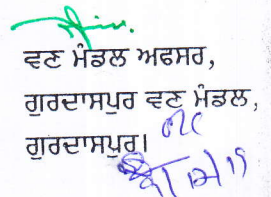 ਵਣ ਮੰਡਲ ਅਫਸਰ,
ਗੁਰਦਾਸਪੁਰ ਵਣ ਮੰਡਲ,
ਗੁਰਦਾਸਪੁਰ।